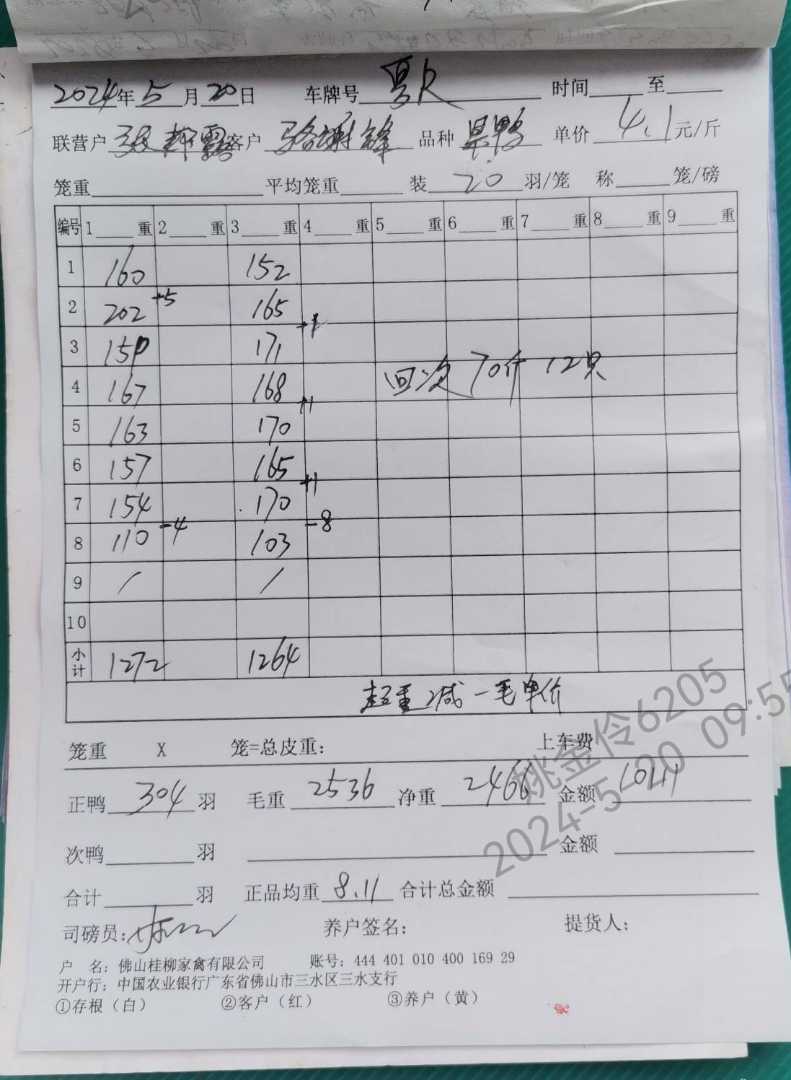 2024年5月20日 车牌号 时间 至
联营户 客户 品种 果鸭 单价 4.1 元/斤
笼重 平均笼重 装 20 羽/笼 称 笼/磅
编号 1 重 2 重 3 重 4 重 5 重 6 重 7 重 8 重 9 重
1 160 152
2 202 +5 165
3 159 171 +1
4 167 168
5 163 170 +1
6 157 165
7 154 170 +1
8 110 -4 103 -8
9 / /
10
回次 70斤 12只
小计 1272 1264
超重减一毛单价
笼重 X 笼=总皮重: 上车费
正鸭 304 羽 毛重 2536 净重 2466 金额 10111
次鸭 羽 金额
合计 羽 正品均重 8.11 合计总金额
司磅员: 养户签名: 提货人:
户 名: 佛山桂柳家禽有限公司 账号: 444 401 010 400 169 29
开户行: 中国农业银行广东省佛山市三水区三水支行
①存根（白） ②客户（红） ③养户（黄）
姚金伶6205
2024-5-20 09:55